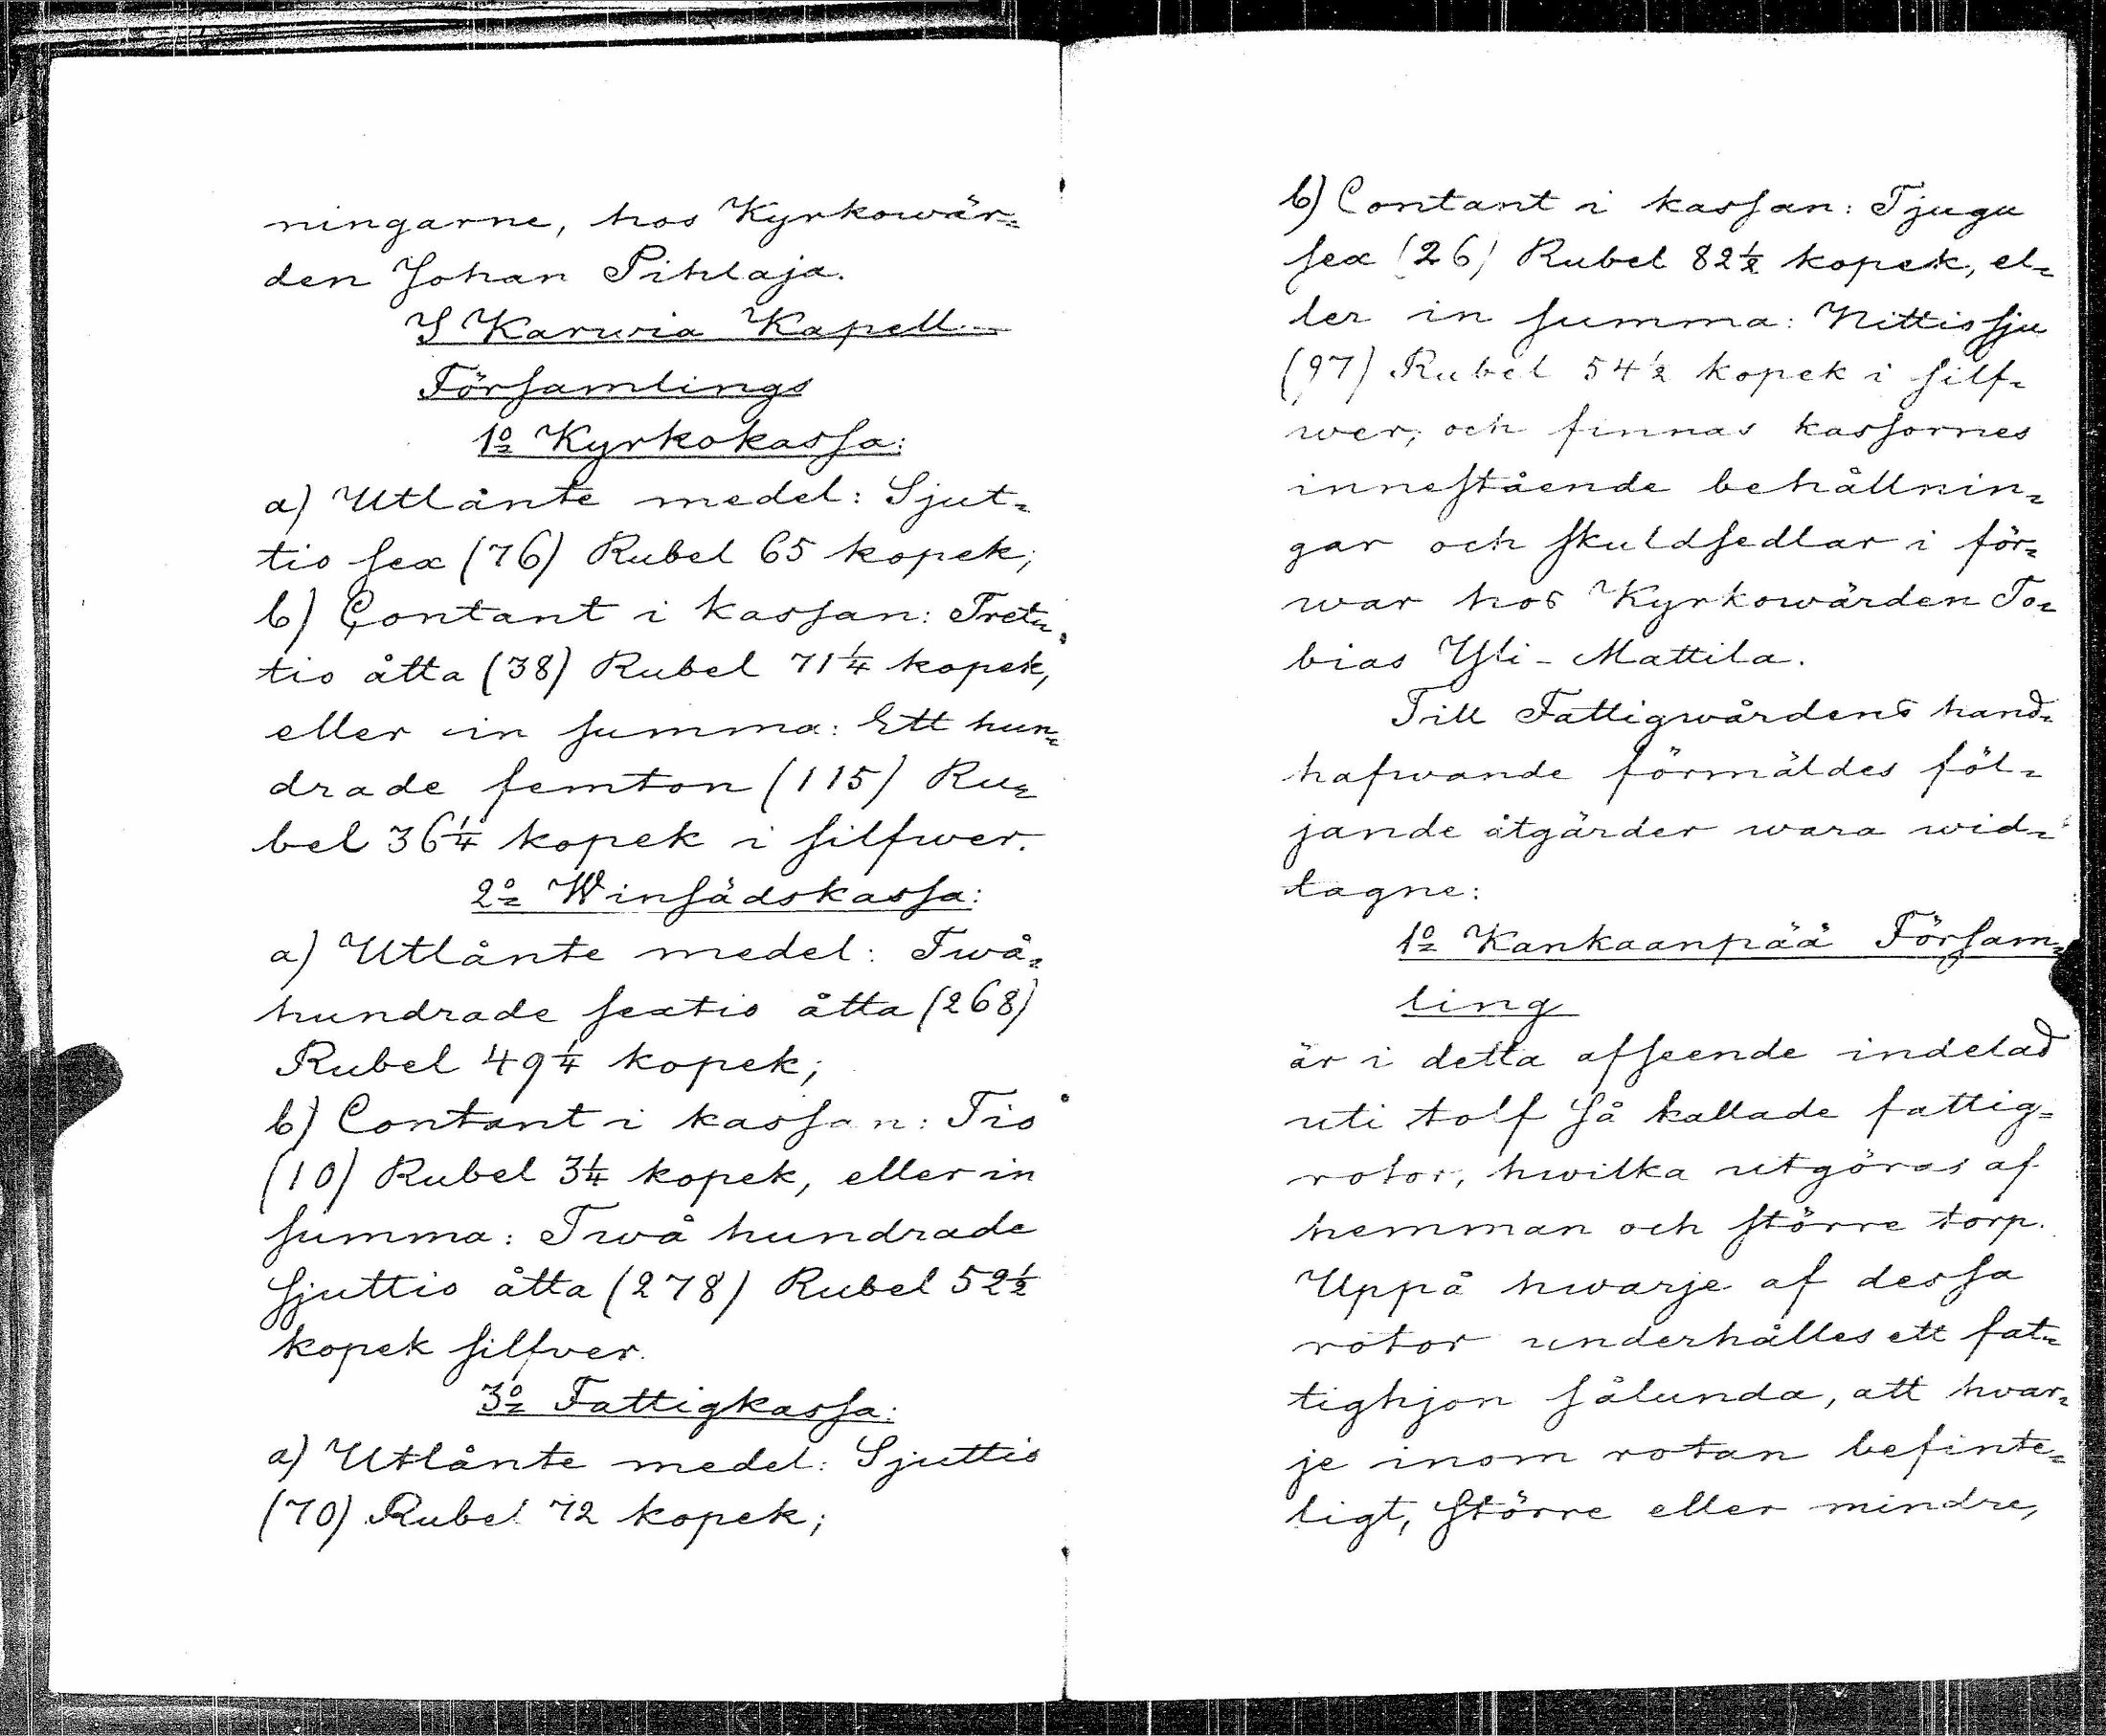 ningarne, hos Kyrkowär=
den Johan Pihlaja.
I Karvia Kapell
Församlings
1o Kyrkokassa:
a) Utlånte medel: Sjut=
tio sex (76) Rubel 65 kopek;
b) Contant i kassan: Trettu=
tio åtta (38) Rubel 71 1/4 kopek,
eller in summa: Ett hun=
drade femton (115) Ru=
bel 36 1/4 kopek i silfwer.
2o Winsädskassa:
a) Utlånte medel: Twå=
hundrade sextio åtta (268)
Rubel 49 1/4 kopek;
b) Contant i kassan: Tio
(10) Rubel 3 1/4 kopek, eller in
summa: Twå hundrade
sjuttio åtta (278) Rubel 52 1/2
kopek silfver.
3o Fattigkassa:
a) Utlånte medel: Sjuttio
(70) Rubel 72 kopek;
b) Contant i kassan: Tjugu
sex (26) Rubel 82 1/2 kopek, el=
ler in summa: Nittiosju
(97) Rubel 54 1/2 kopek i silf=
wer; och finnas kassornes
innestående behållnin=
gar och skuldsedlar i för=
war hos Kyrkowärden To=
bias Yli-Mattila.
Till Fattigwårdens hand=
hafwande förmäldes föl=
jande åtgärder wara wid=
tagne:
1o Kankaanpää Försam=
ling
är i detta afseende indelad
uti tolf så kallade fattig=
rotor, hwilka utgöras af
hemman och större torp.
Uppå hwarje af dessa
rotor underhålles ett fat=
tighjon sålunda, att hwar=
je inom rotan befinte=
ligt, större eller mindre,